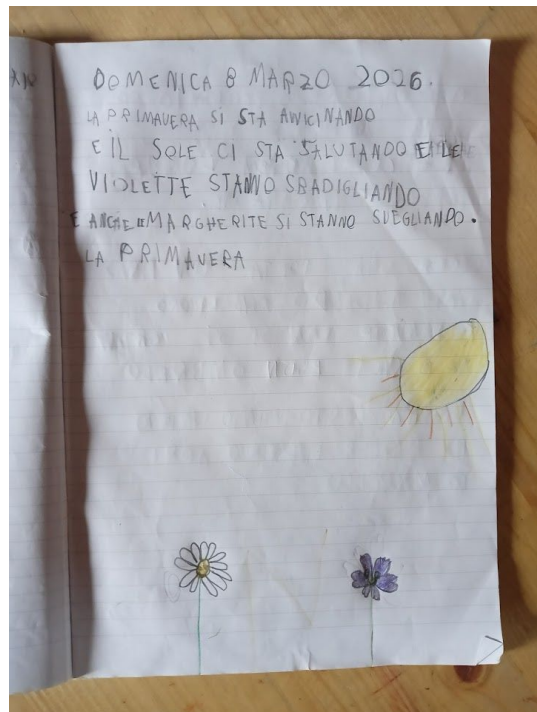 DOMENICA 8 MARZO 2026.
LA PRIMAVERA SI STA AVVICINANDO
E IL SOLE CI STA SALUTANDO E LE
VIOLETTE STANNO SBADIGLIANDO
E ANCHE LE MARGHERITE SI STANNO SVEGLIANDO.
LA PRIMAVERA